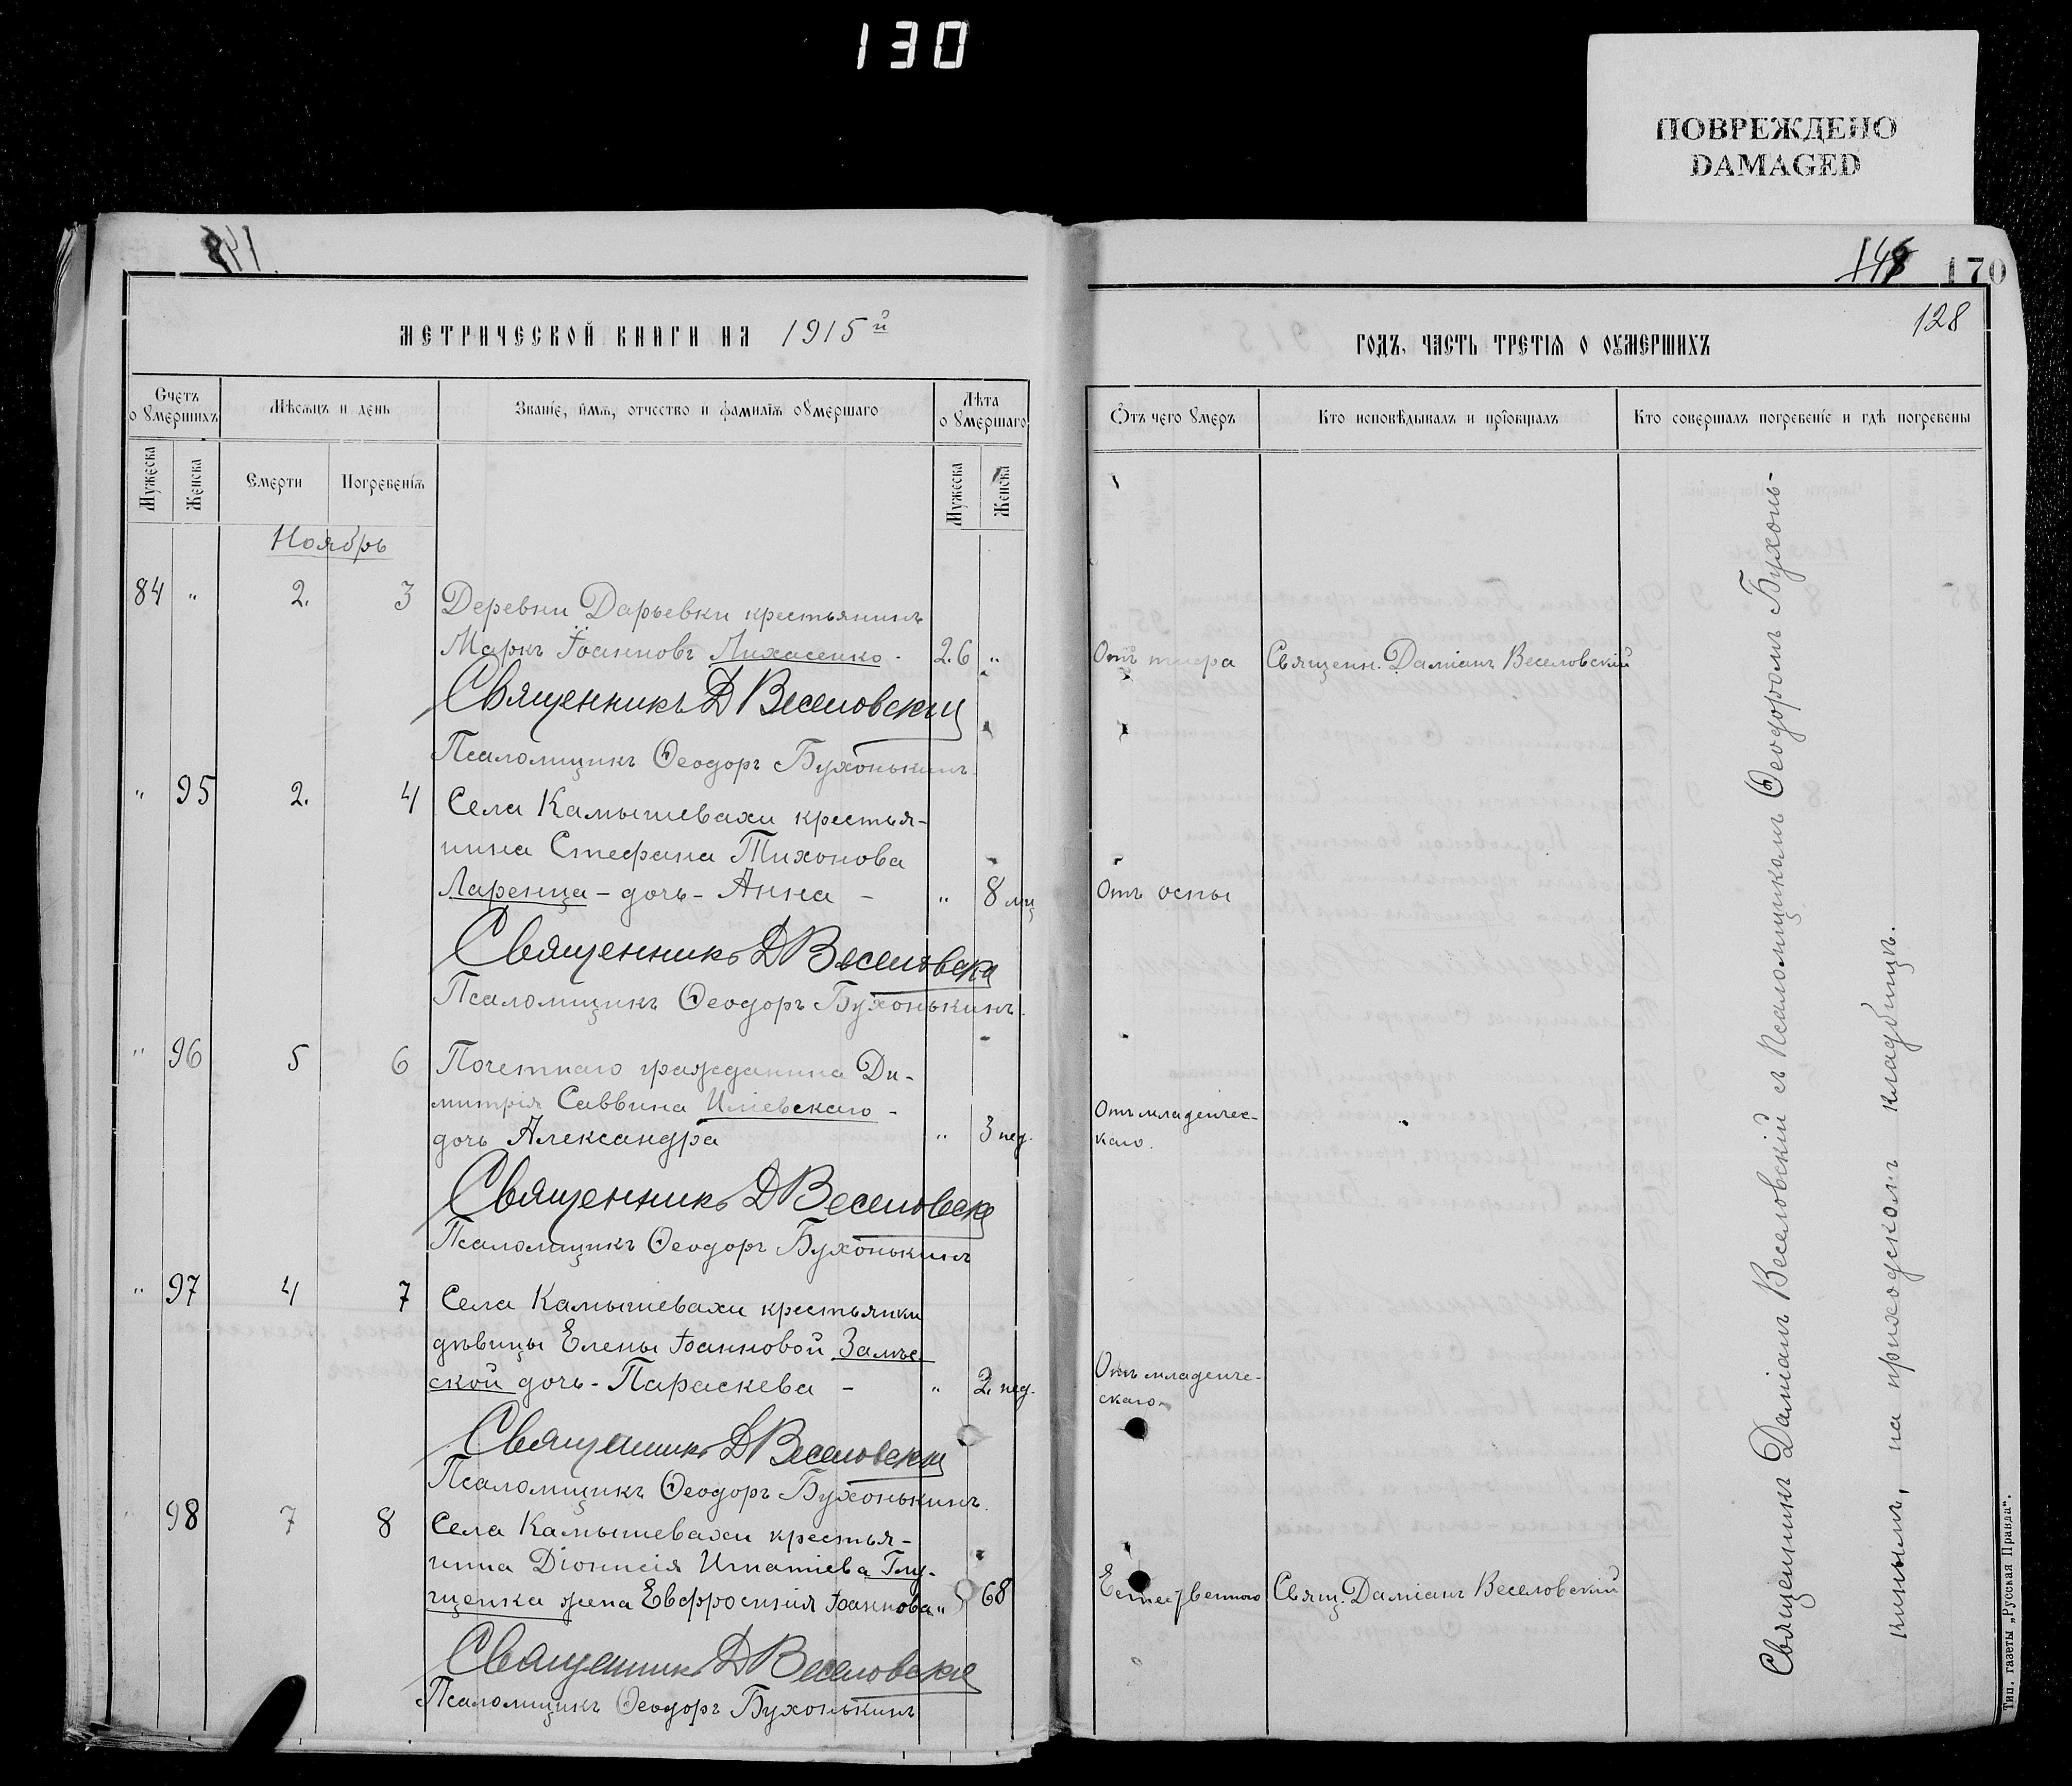 130
ПОВРЕЖДЕНО
DAMAGED
841.
МЕТРИЧЕСКОЙ КНИГИ НА 1915й
Счетъ о умершихъ
Мѣсяцъ и день
Званіе, имя, отчество и фамилія оумершаго
Лѣта оумершаго
Мужеска
Женска
Смерти
Погребенія
Мужеска
Женска
Ноябрь
84 " 2. 3 Деревни Дарьевки крестьянинъ
Маркъ Іоанновъ Лихасенко - 26 "
Священникъ Д Веселовскій
Псаломщикъ Ѳеодоръ Бухонькинъ.
" 95 2. 4 Села Камышевахи крестья-
нина Стефана Тихонова
Ларенца - дочь - Анна - " 8 мц
Священникъ Д Веселовскі
Псаломщикъ Ѳеодоръ Бухонькинъ.
" 96 5 6 Почетнаго гражданина Ди-
митрія Саввина Иліевскаго -
дочь Александра " 3 нед.
Священникъ Д Веселовскі
Псаломщикъ Ѳеодоръ Бухонькинъ
" 97 4 7 Села Камышевахи крестьянки
дѣвицы Елены Іоанновой
ской дочь - Параскева - " 2 нед.
Священникъ Д Веселовскій
Псаломщикъ Ѳеодоръ Бухонькинъ.
" 98 7 8 Села Камышевахи крестья-
нина Діонисія Игнатіева Глу-
щенка жена Евфросинія Іоаннова " 68
Священникъ Д Веселовскі
Псаломщикъ Ѳеодоръ Бухонькинъ
170
128
ГОДЪ, ЧАСТЬ ТРЕТІЯ О ОУМЕРШИХЪ
Отъ чего умеръ
Кто исповѣдывалъ и пріобщалъ
Кто совершалъ погребеніе и гдѣ погребены
Отъ тифа Священн. Даміанъ Веселовскій
Отъ оспы
Отъ младенчес-
каго.
Отъ младенче-
скаго
Естественного Свящ. Даміанъ Веселовскій
Священникъ Даміанъ Веселовскій съ Псаломщикомъ Ѳеодоромъ Бухонь-
кинымъ, на приходскомъ кладбищѣ.
Тип. газеты „Русская Правда".